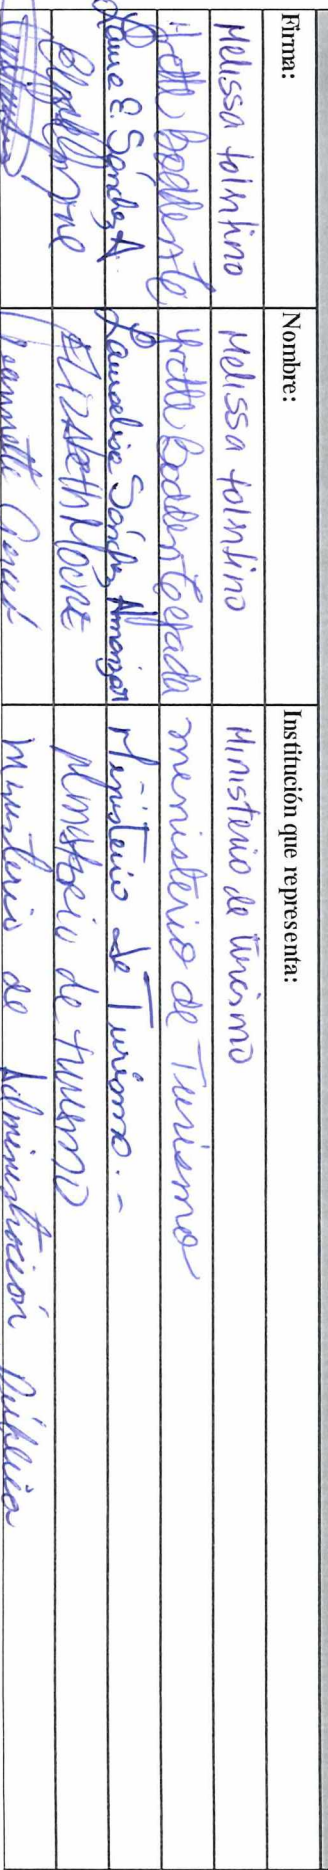 Firma: Nombre: Institución que representa:
Melissa tolentino Melissa tolentino Ministerio de turismo
Yvette Bodden Yvette Bodden Tejada ministerio de Turismo
Laura E. Sánchez A. Sánchez Almanzar Ministerio de Turismo.-
ELIZABETH MOORE Ministerio de turismo
Jeannette Ministerio de Administración Pública